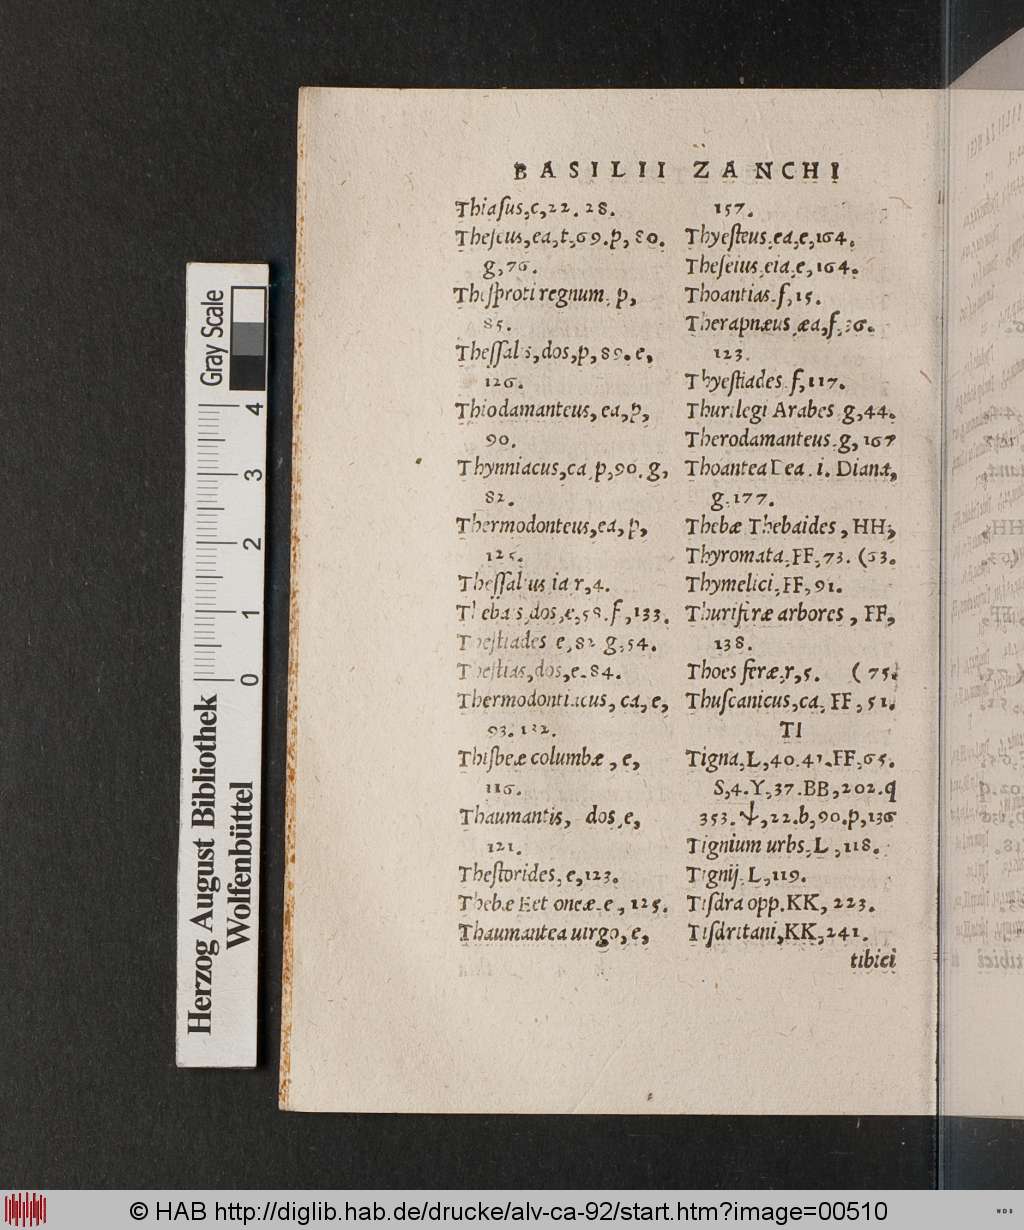 BASILII ZANCHI
Thiasus,c,22. 28.
Theseus,ea,t,69.p,80.
g,76.
Thesproti regnum. p,
85.
Thessalis,dos,p,89.e,
126.
Thiodamanteus, ea,p,
90.
Thynniacus,ca.p,90.g,
82.
Thermodonteus,ea,p,
125.
Thessalius ia r,4.
Thebais,dos,e,58.f,133.
Thestiades e,82 g,54.
Thestias,dos,e.84.
Thermodontiacus, ca,e,
93. 132.
Thisbeæ columbæ, e,
116.
Thaumantis, dos,e,
121.
Thestorides, e,123.
Thebæ Eetioneæ.e, 125.
Thaumantea uirgo,e,
157.
Thyesteus,ea,e,164.
Theseius,eia,e,164.
Thoantias.f,15.
Therapnæus,æa,f,36.
123.
Thyestiades f,117.
Thurilegi Arabes g,44.
Therodamanteus.g, 167
Thoantea Dea. i. Diana,
g.177.
Thebæ Thebaides, HH,
Thyromata,FF,73. (63.
Thymelici,FF,91.
Thurifiræ arbores, FF,
138.
Thoes feræ,r,5. (75.
Thuscanicus,ca, FF,51.
TI
Tigna,L,40.41.FF,65.
S,4.Y,37.BB,202.q
353.ψ,22.b,90.p,136
Tignium urbs,L,118.
Tignij L,119.
Tisdra opp.KK, 223.
Tisdritani,KK,241.
tibici
Gray Scale
0 1 2 3 4
Herzog August Bibliothek
Wolfenbüttel
© HAB http://diglib.hab.de/drucke/alv-ca-92/start.htm?image=00510